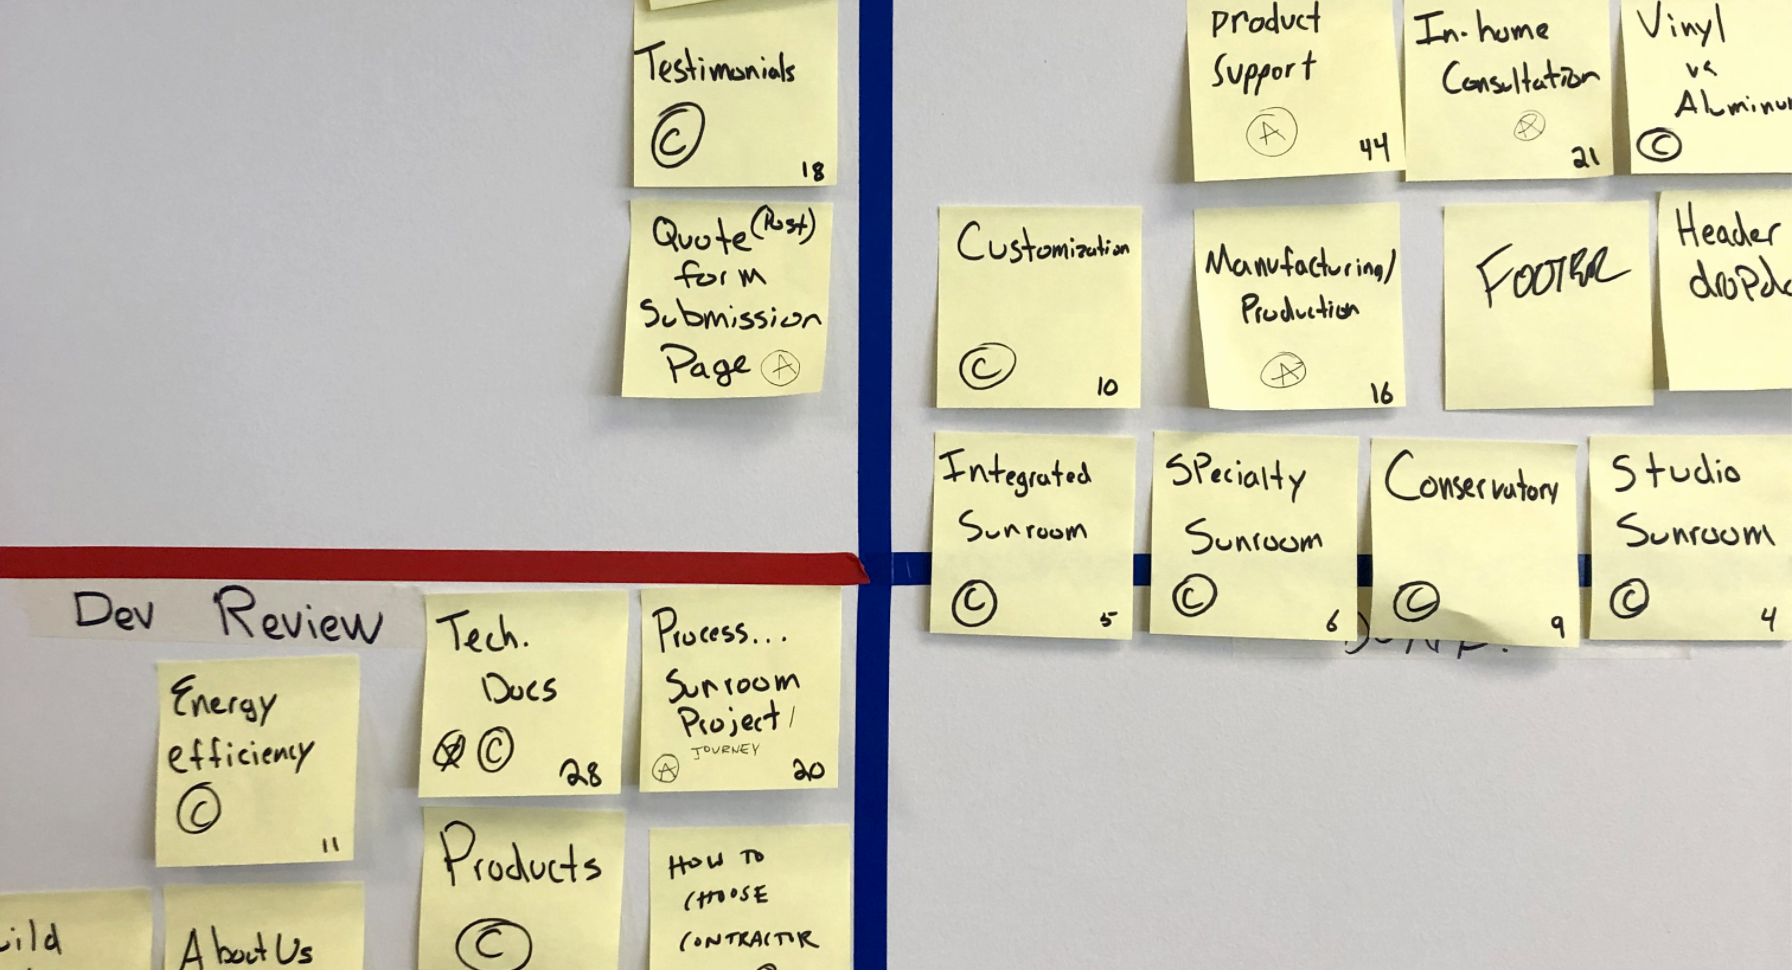 Testimonials
C
18
Quote (Post)
form
Submission
Page A
Product
Support
A
44
In-home
Consultation
A
21
Vinyl
vs
Aluminu
C
Customization
C
10
Manufacturing/
Production
A
16
FOOTER
Header
dropdo
Integrated
Sunroom
C
5
Specialty
Sunroom
C
6
Conservatory
C
9
Studio
Sunroom
C
4
Dev Review
Energy
efficiency
C
11
Tech.
Docs
C
28
Process...
Sunroom
Project/
JOURNEY
A
20
Products
C
HOW TO
CHOOSE
CONTRACTOR
uild
About Us